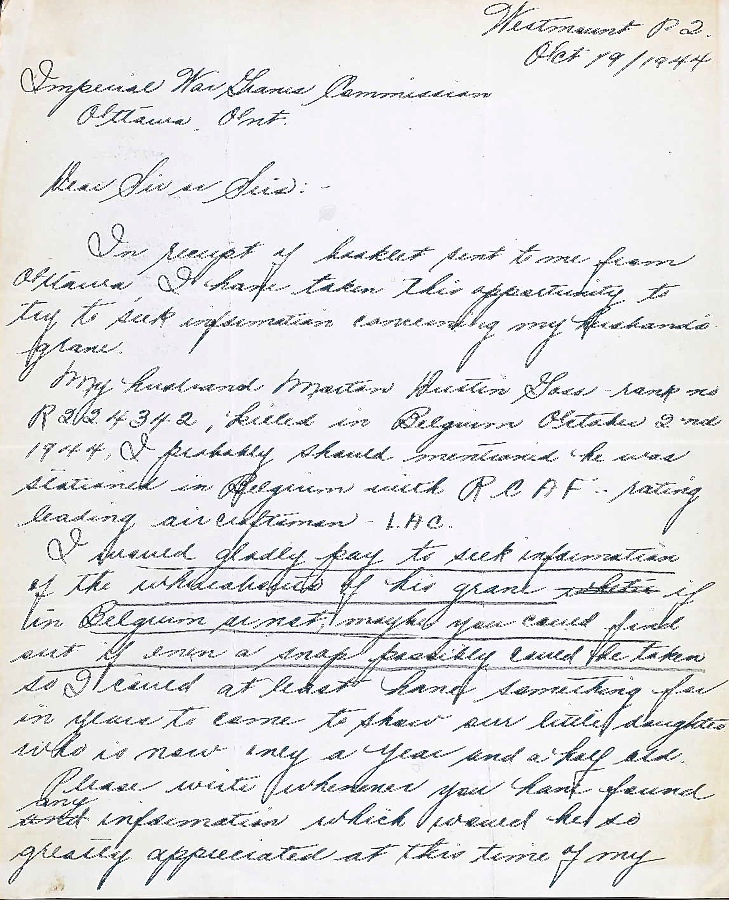 Westmount P.2.
Oct 19/1944
Imperial War Graves Commission
Ottawa, Ont.
Dear Sir or Sirs:-
In receipt of booklet sent to me from
Ottawa I have taken this opportunity to
try to seek information concerning my husband's
grave.
My husband Martin Dustin Goss - rank no
R224342, killed in Belgium October 2nd
1944, I probably should mentioned he was
stationed in Belgium with R C A F - rating
leading aircraftsman - L.A.C.
I would gladly pay to seek information
of the whereabouts of his grave if
in Belgium or not, maybe you could find
out if even a snap possibly could be taken
so I could at least have something for
in years to come to show our little daughter
who is now only a year and a half old.
Please write whenever you have found
any information which would be so
greatly appreciated at this time of my